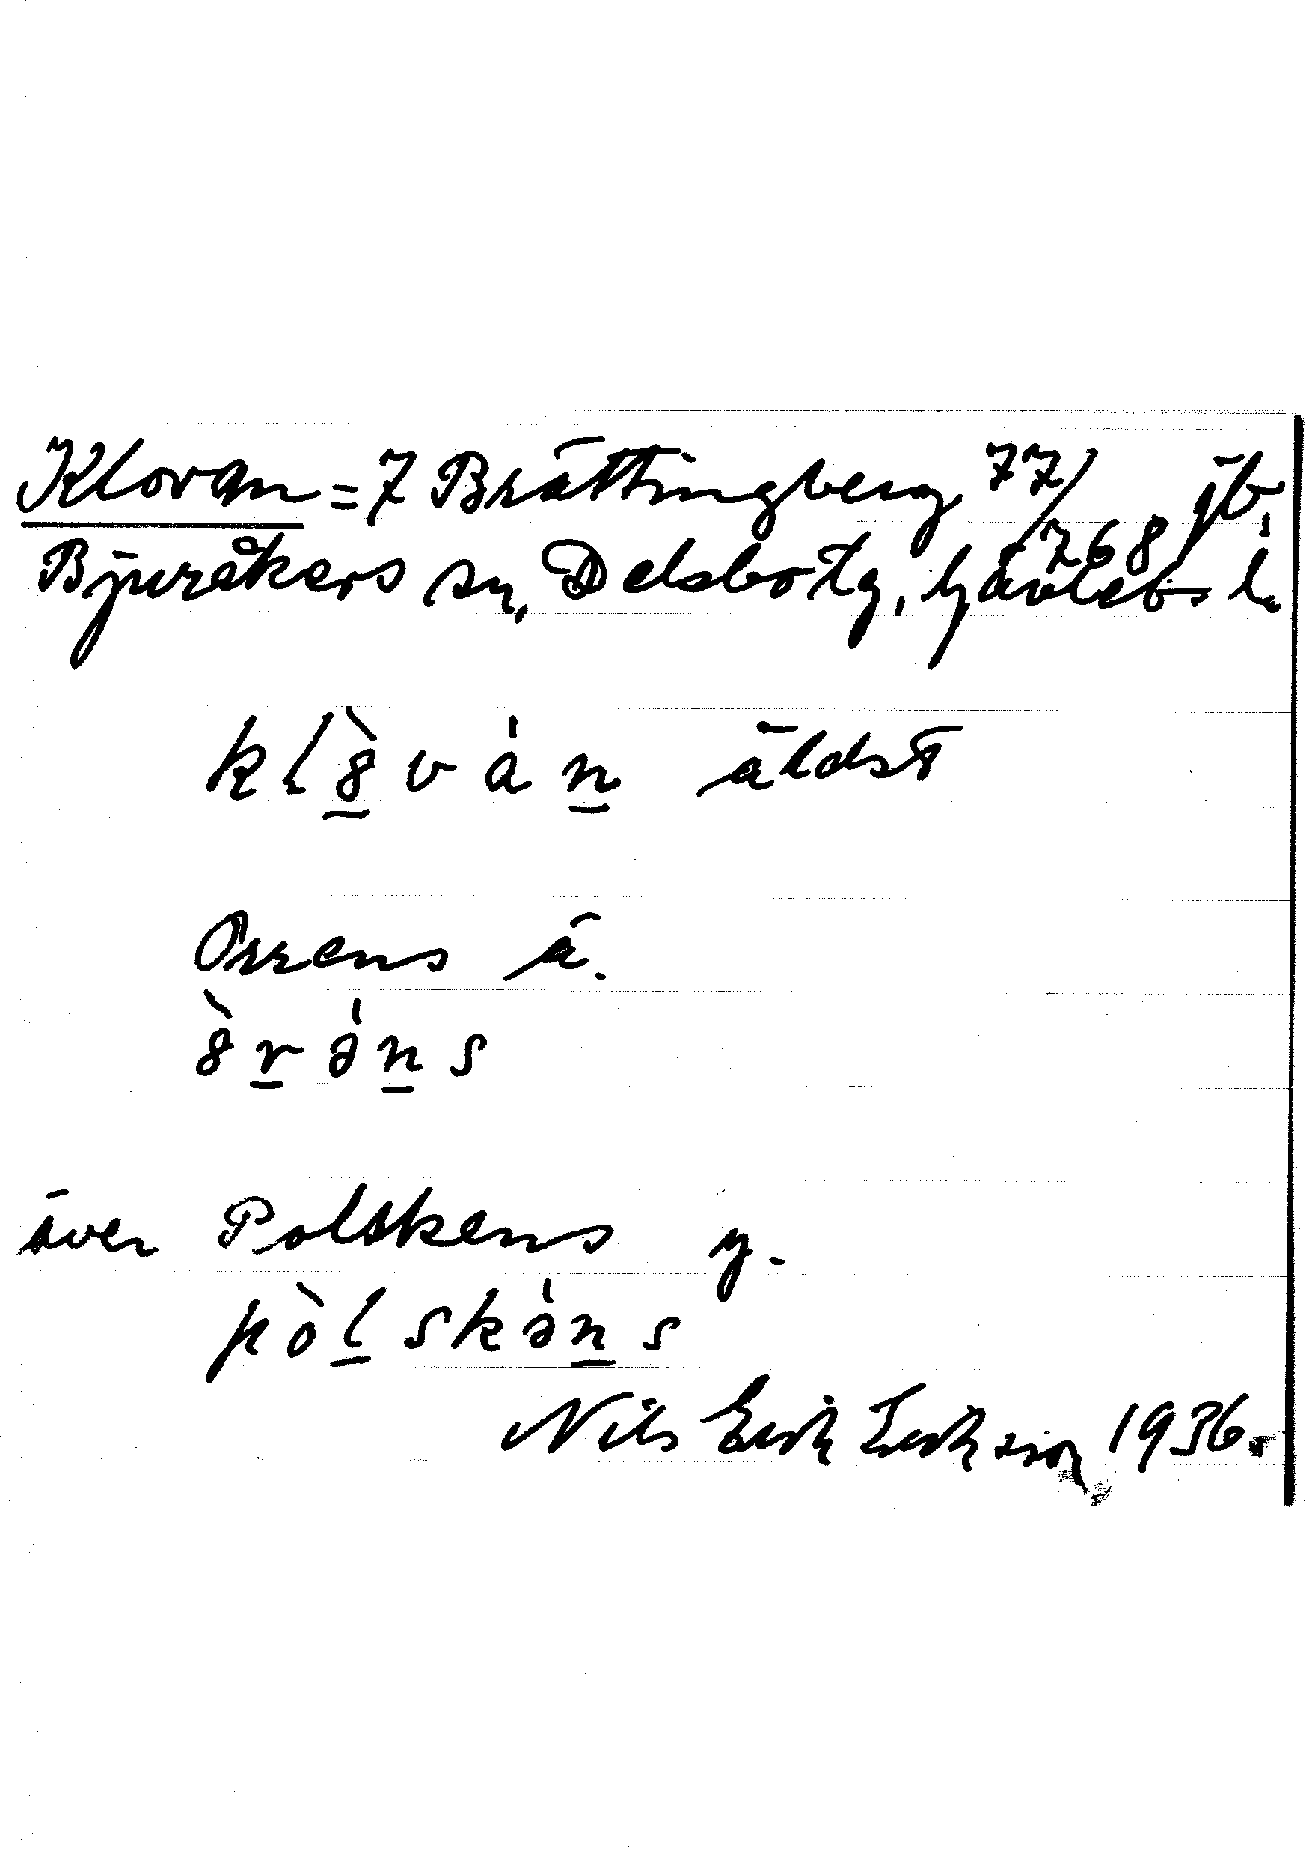 Klovan = 7 Brättingberg 77/768 jb.
Bjuråkers sn, Delsbo tg, Gävlebs l.
kl8̲̀ván̲ äldst
Orrens ä.
8̀r̲ə́n̲s
även Polskens y.
pòl̲skə́n̲s
Nils Erik Eriksson 1936.